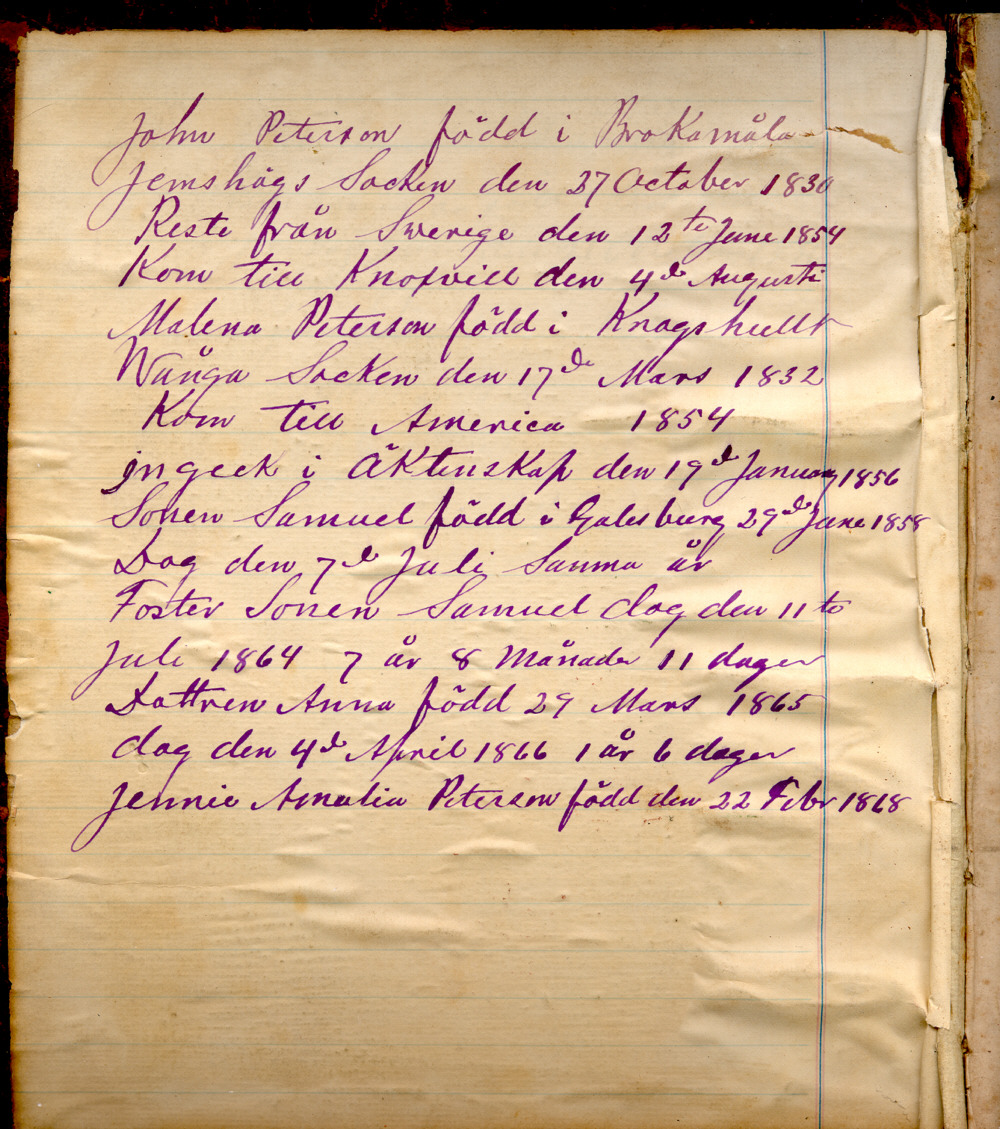 John Peterson född i Brokamåla
Jemshögs Socken den 27 October 1830
Reste från Swerige den 12te June 1854
Kom till Knoxvill den 4de Augusti
Malena Peterson född i Knagshult
Wånga Socken den 17de Mars 1832
Kom till America 1854
ingeck i Äktenskap den 19de January 1856
Sonen Samuel född i Galesburg 29de June 1858
Dog den 7de Juli Samma år
Foster Sonen Samuel dog den 11te
Juli 1864 7 år 8 Månader 11 dager
Dottren Anna född 29 Mars 1865
dog den 4de April 1866 1 år 6 dager
Jennie Amalia Peterson född den 22 Febr 1868